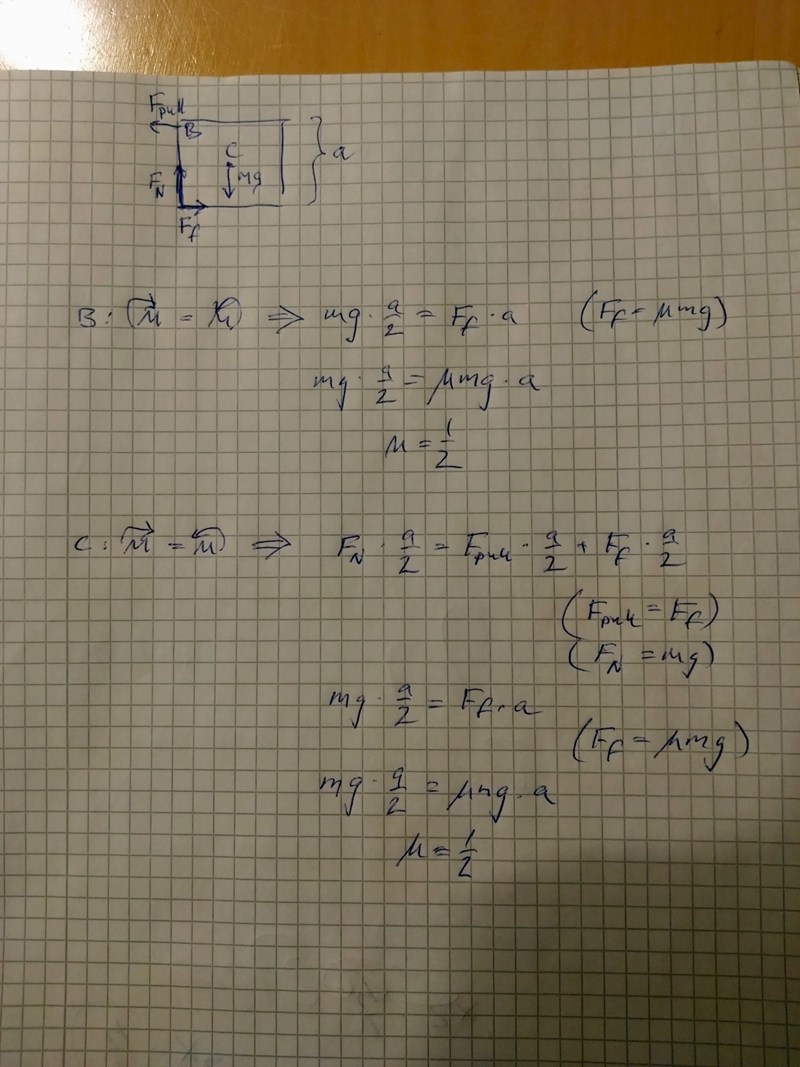 F_puk
B
C
a
F_N
mg
F_f
B: M⃗ = M⃖ ⇒ mg · a/2 = F_f · a (F_f = μmg)
mg · a/2 = μmg · a
μ = 1/2
C: M⃗ = M⃖ ⇒ F_N · a/2 = F_puk · a/2 + F_f · a/2
(F_puk = F_f)
(F_N = mg)
mg · a/2 = F_f · a
(F_f = μmg)
mg · a/2 = μmg · a
μ = 1/2